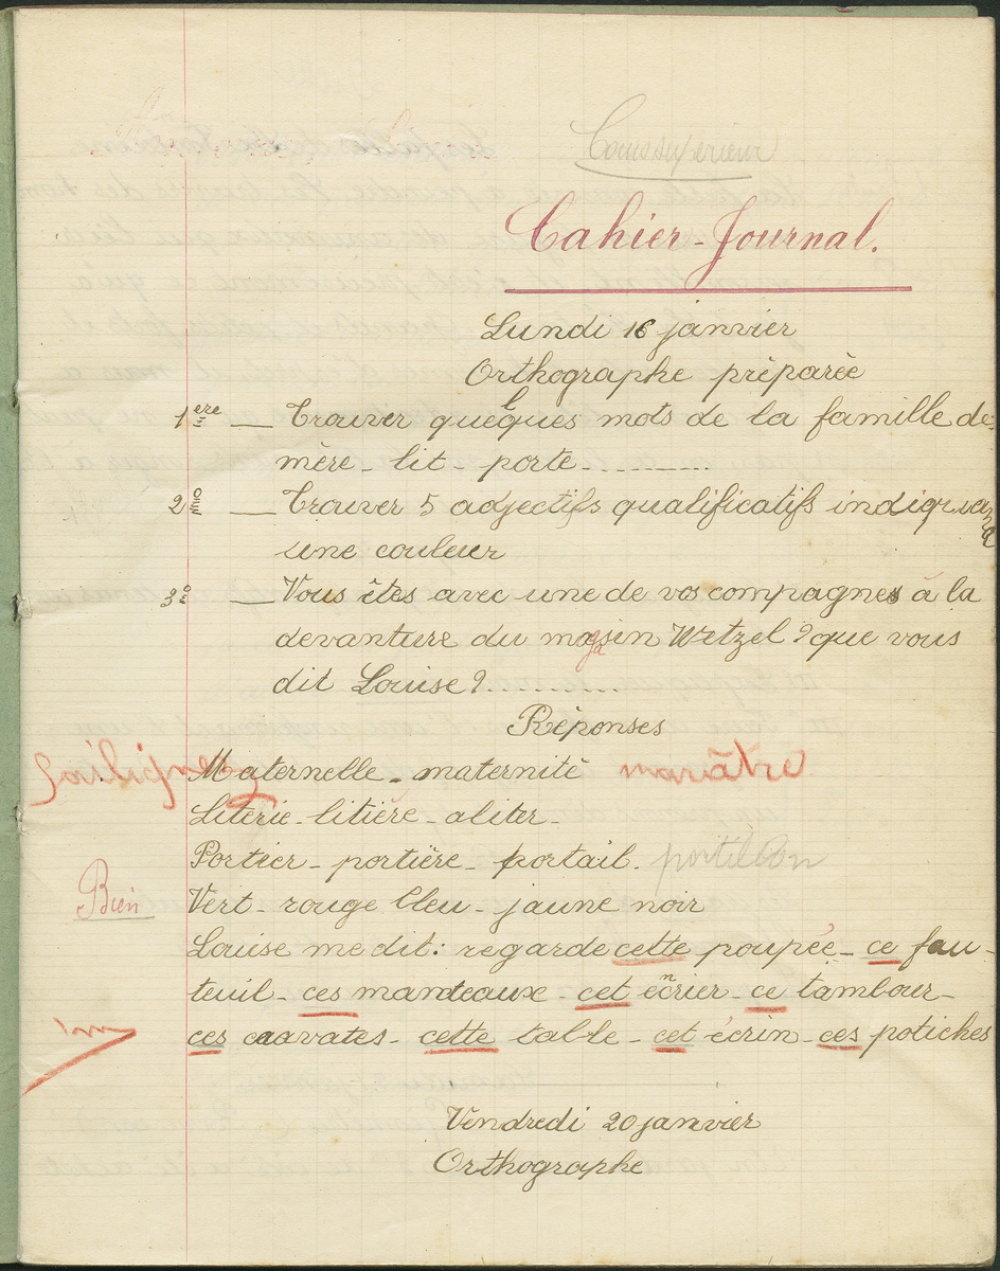 Cours supérieur
Cahier-Journal.
Lundi 16 janvier
Orthographe préparée
1ere — Trouver quelques mots de la famille de
mère - lit - porte ..........
2o — Trouver 5 adjectifs qualificatifs indiquand
une couleur
3o — Vous êtes avec une de vos compagnes à la
devanture du magasin Wetzel ? que vous
dit Louise ?..........
Réponses
Maternelle - maternité marâtre
Literie - litière - aliter -
Portier - portière - portail. portillon
Bien
Vert - rouge bleu - jaune noir
Louise me dit : regarde cette poupée - ce fau-
teuil - ces manteaux - cet écrier - ce tambour -
ces cravates - cette table - cet écrin - ces potiches
Vendredi 20 janvier
Orthographe